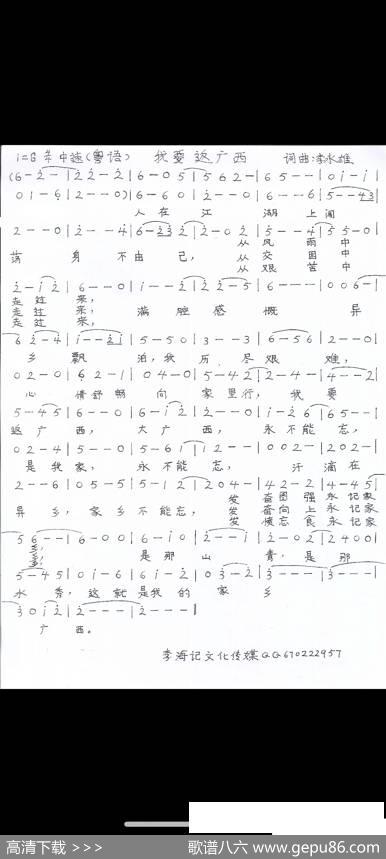 1=G 中速(粤语) 我要返广西 词曲:李永雄
(6-2-|22-2-|6-05|562-|65--|01-1-|
01-6|2--0)|6-60|2--0|6--6|5--43|
人在江湖上闯
2--0|2--4|6-23|2-02|5--4|55-0|
荡身不由己,从风雨中
从交困中
从艰苦中
2-12|6--0|1--2|22-5|6---|006-|
走过来,满腔感慨异
走过来,
走过来,
62-4|1--21|5-50|3--3|6-56|2--0|
乡飘泊,我历尽艰难,
02-0|62-1|04-0|5-42|2-4-|4--2|
心情舒畅向家里行,我要
5-45|6--0|6-12|2--0|1-26|65--|
返广西,大广西,永不能忘,
02-4|5--0|5-61|12--|002-|202-|
是我家,永不能忘,汗滴在
2--6|05-5|5-12|204-|42-2|4-45|
异乡,家乡不能忘,发奋图强永记家
发奋向上永记家
发愤忘食永记家
56--|6-00|6-10|2--1|02-0|2400|
乡,是那山青,是那
乡,
乡,
5-45|01-6|61-2|03-2|3---|3---|
水秀,这就是我的家乡
3012|2---|2---|
广西。
李海记文化传媒QQ670222957
高清下载 >>>
歌谱八六 www.gepu86.com